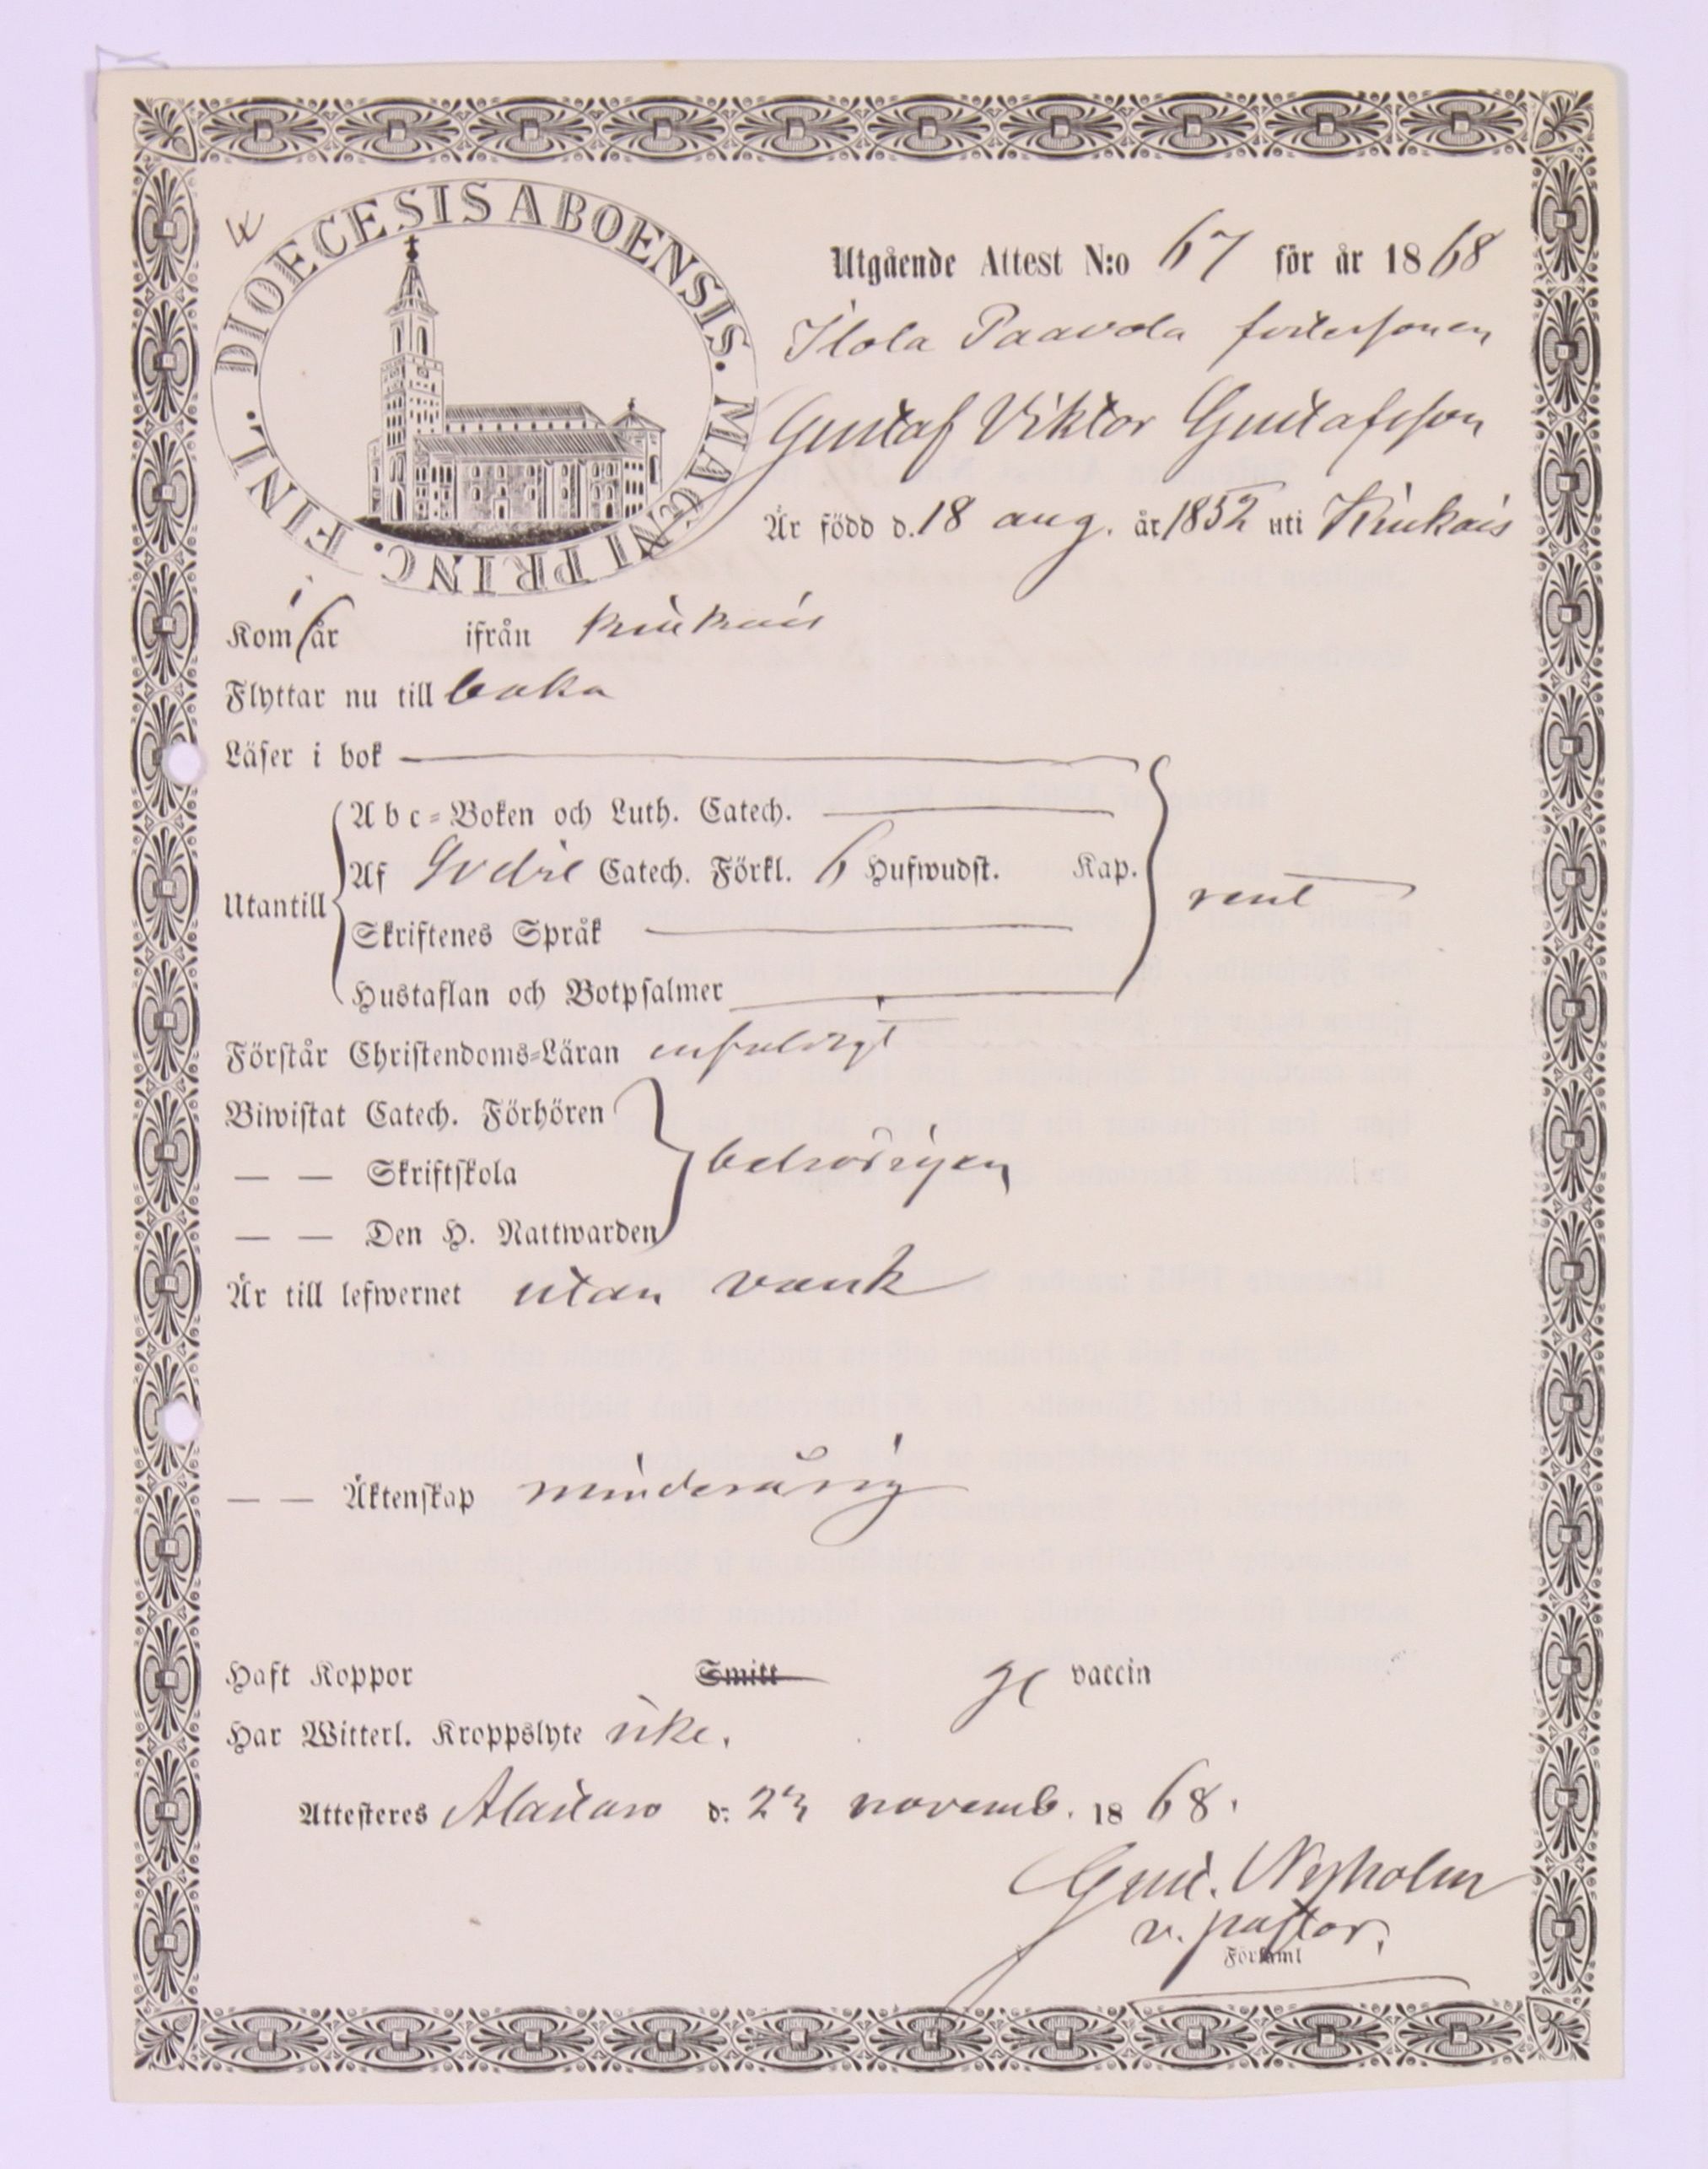 DIOECESIS ABOENSIS. MAGNI PRINC. FINL.
Utgående Attest N:o 67 för år 1868
Ilola Paavola fostersonen
Gustaf Viktor Gustafsson
Är född d. 18 aug. år 1852 uti Kiukais
Kom i år ifrån Kiukais
Flyttar nu till baka
Läser i bok
Abc-Boken och Luth. Catech.
Utantill Af Gvdil Catech. Förkl. 6 Hufwudst. Kap. rent
Skriftenes Språk
Hustaflan och Botpsalmer
Förstår Christendoms-Läran enfaldigt
Biwistat Catech. Förhören
— — Skriftskola behörigen
— — Den H. Nattwarden
Är till lefwernet utan vank
— — Äktenskap minderårig
Haft Koppor Smitt vaccin
Har Witterl. Kroppslyte icke.
Attesteres Alastaro d: 23 novemb. 1868.
Gust. Nyholm
v. pastor.
Förſaml